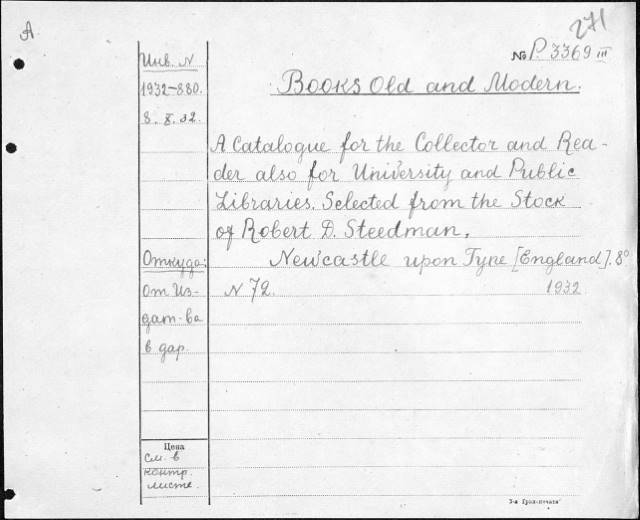 271
А
№ P. 3369 III
Инв. N
1932-880.
8. X. 32.
Books Old and Modern.
A Catalogue for the Collector and Rea-
der also for University and Public
Libraries. Selected from the Stock
of Robert D. Steedman.
Newcastle upon Tyne [England]. 8°
N 72. 1932
Откуда:
От Из-
дат-ва
в дар.
Цена
См. в
контр.
листе.